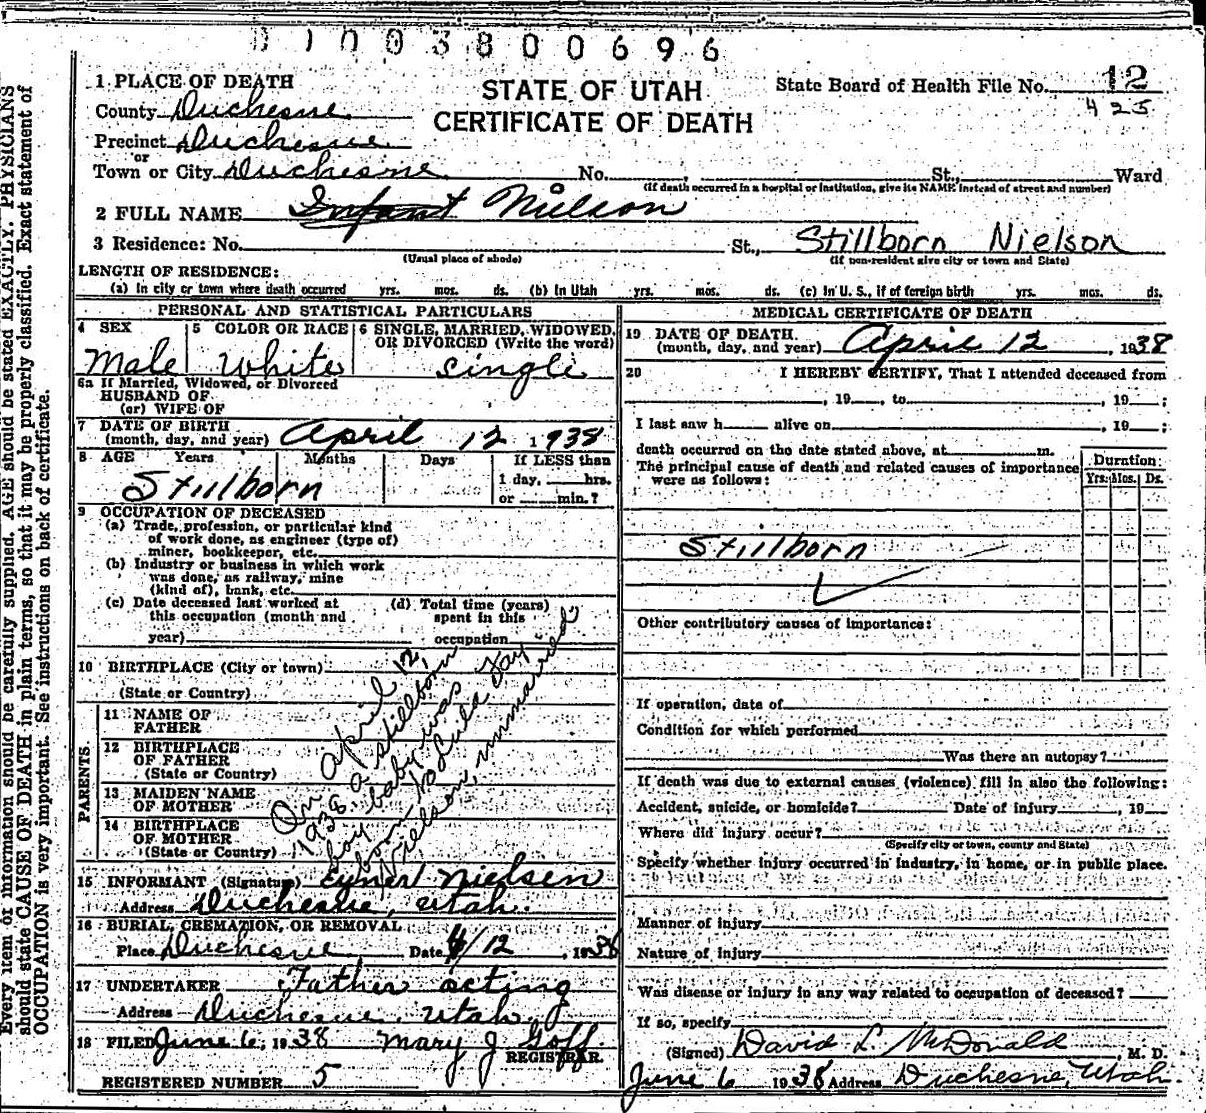 D 1 0 0 3 8 0 0 6 9 6
1 PLACE OF DEATH
STATE OF UTAH
State Board of Health File No. 12
425
County Duchesne
CERTIFICATE OF DEATH
Precinct Duchesne
or
Town or City Duchesne No. St., Ward
(If death occurred in a hospital or institution, give its NAME instead of street and number)
2 FULL NAME Infant Nielson
3 Residence: No. St., Stillborn Nielson
(Usual place of abode) (If non-resident give city or town and State)
LENGTH OF RESIDENCE:
(a) In city or town where death occurred yrs. mos. ds. (b) In Utah yrs. mos. ds. (c) In U. S., if of foreign birth yrs. mos. ds.
PERSONAL AND STATISTICAL PARTICULARS
4 SEX 5 COLOR OR RACE 6 SINGLE, MARRIED, WIDOWED,
OR DIVORCED (Write the word)
Male White Single
6a If Married, Widowed, or Divorced
HUSBAND OF
(or) WIFE OF
7 DATE OF BIRTH
(month, day, and year) April 12 1938
8 AGE Years Months Days If LESS than
1 day, hrs.
or min.?
Stillborn
9 OCCUPATION OF DECEASED
(a) Trade, profession, or particular kind
of work done, as engineer (type of)
miner, bookkeeper, etc.
(b) Industry or business in which work
was done, as railway, mine
(kind of), bank, etc.
(c) Date deceased last worked at (d) Total time (years)
this occupation (month and spent in this
year) occupation
10 BIRTHPLACE (City or town)
(State or Country)
PARENTS
11 NAME OF
FATHER
12 BIRTHPLACE
OF FATHER
(State or Country)
13 MAIDEN NAME
OF MOTHER
14 BIRTHPLACE
OF MOTHER
(State or Country)
On April 12,
1938 a stillborn
boy baby was
born to Lula Fay
Nielson, unmarried
15 INFORMANT (Signature) Eyner Nielsen
Address Duchesne, Utah.
16 BURIAL, CREMATION, OR REMOVAL
Place Duchesne Date 4/12, 1938
17 UNDERTAKER Father acting
Address Duchesne, Utah
18 FILED June 6, 1938 Mary J Goff
REGISTRAR.
REGISTERED NUMBER 5
MEDICAL CERTIFICATE OF DEATH
19 DATE OF DEATH
(month, day, and year) April 12, 1938
20 I HEREBY CERTIFY, That I attended deceased from
, 19 , to , 19 ;
I last saw h alive on , 19 ;
death occurred on the date stated above, at m.
The principal cause of death and related causes of importance
were as follows:
Duration:
Yrs. Mos. Ds.
Stillborn
Other contributory causes of importance:
If operation, date of
Condition for which performed
Was there an autopsy?
If death was due to external causes (violence) fill in also the following:
Accident, suicide, or homicide? Date of injury , 19
Where did injury occur?
(Specify city or town, county and State)
Specify whether injury occurred in industry, in home, or in public place.
Manner of injury
Nature of injury
Was disease or injury in any way related to occupation of deceased?
If so, specify
(Signed) David L. McDonald, M. D.
June 6 1938 Address Duchesne, Utah.
Every item of information should be carefully supplied. AGE should be stated EXACTLY. PHYSICIANS
should state CAUSE OF DEATH in plain terms, so that it may be properly classified. Exact statement of
OCCUPATION is very important. See instructions on back of certificate.